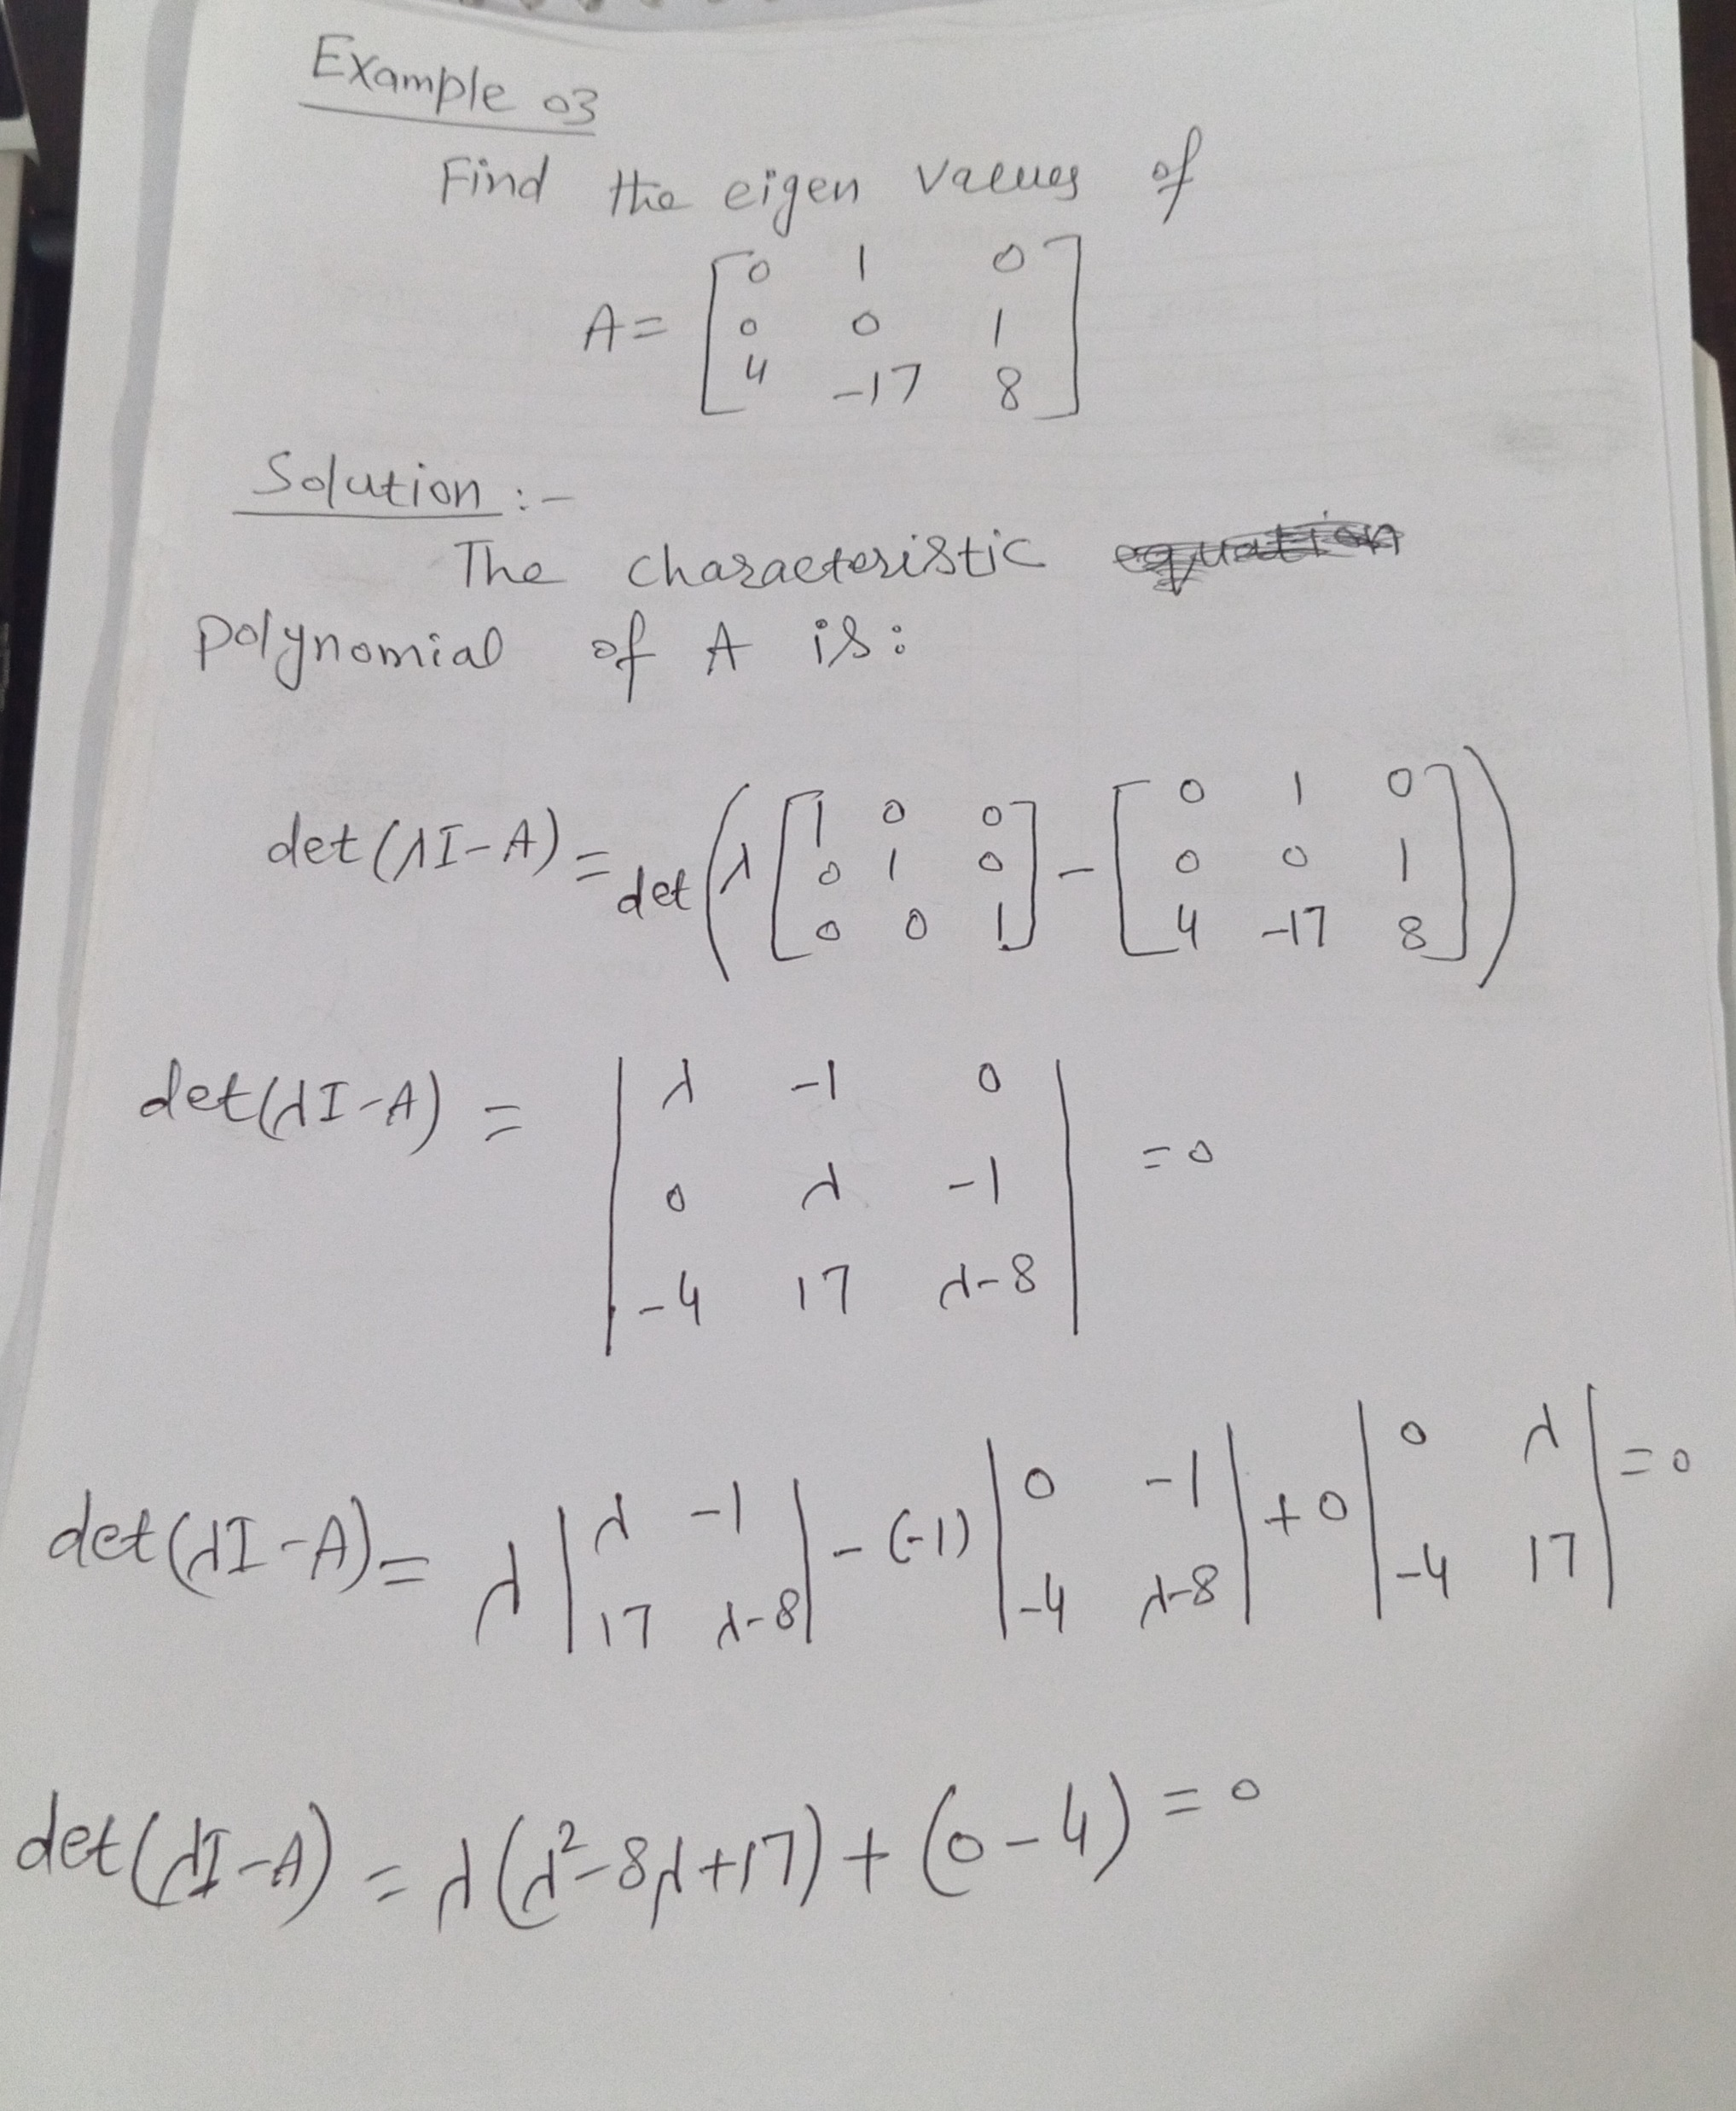 Example 03
Find the eigen values of
A = [0 1 0
0 0 1
4 -17 8]
Solution :-
The characteristic equation
polynomial of A is:
det(λI-A) = det(λ[1 0 0
0 1 0
0 0 1] - [0 1 0
0 0 1
4 -17 8])
det(λI-A) = |λ -1 0
0 λ -1
-4 17 λ-8| = 0
det(λI-A) = λ|λ -1
17 λ-8| - (-1)|0 -1
-4 λ-8| + 0|0 λ
-4 17| = 0
det(λI-A) = λ(λ²-8λ+17) + (0-4) = 0